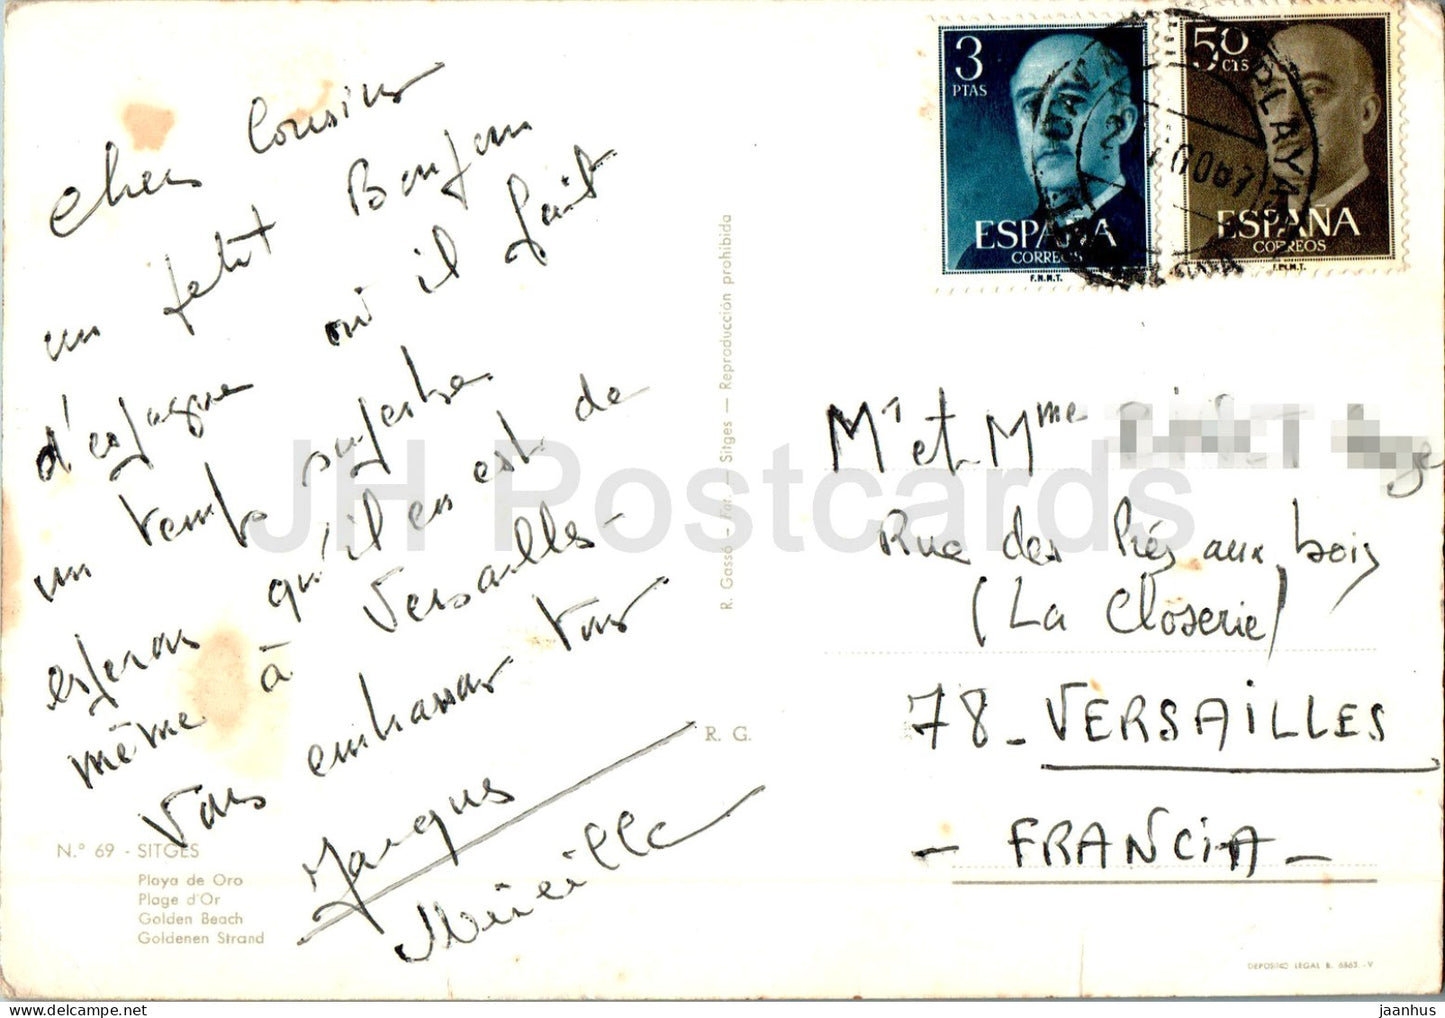 chers Cousins
un petit Bonjour
d'espagne où il fait
un temps superbe
espérons qu'il en est de
même à Versailles -
Vous embrassons tous
Jacques
Mireille
N.º 69 - SITGES
Playa de Oro
Plage d'Or
Golden Beach
Goldenen Strand
R. Gassó - Fot. - Sitges - Reproducción prohibida
R. G.
3
PTAS
ESPAÑA
CORREOS
F.N.M.T.
50
CTS
ESPAÑA
CORREOS
F.N.M.T.
PLAYA
Mr et Mme
Rue des Prés aux bois
(La Closerie)
78 - VERSAILLES
- FRANCIA -
DEPOSITO LEGAL B. 6863 - V
JH Postcards
jaanhus